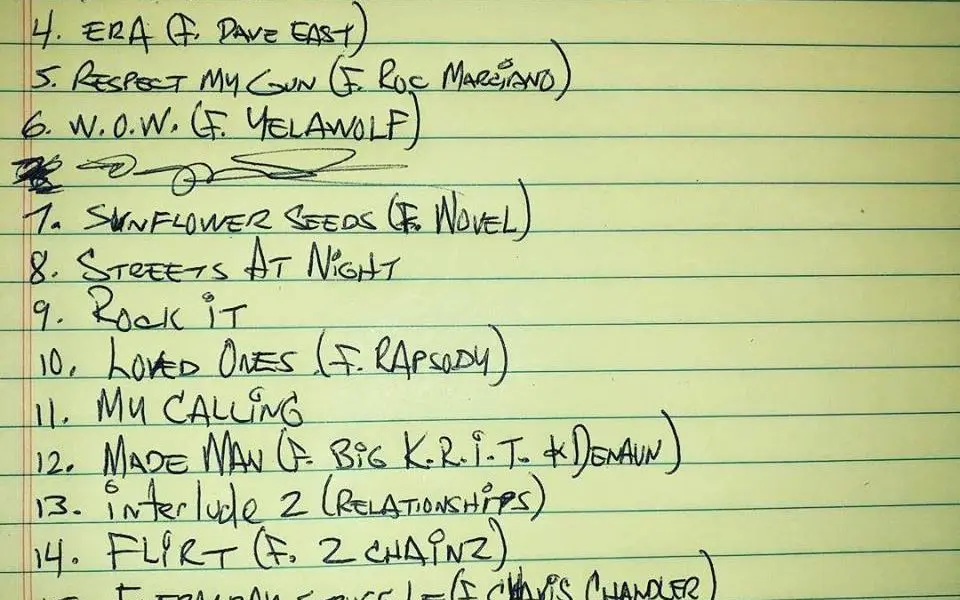 4. ERA (F. DAVE EAST)
5. RESPECT MY GUN (F. ROC MARCIANO)
6. W.O.W. (F. YELAWOLF)
7. SUNFLOWER SEEDS (F. NOVEL)
8. STREETS AT NIGHT
9. ROCK iT
10. LOVED ONES (F. RAPSODY)
11. MY CALLiNG
12. MADE MAN (F. BiG K.R.i.T. & DENAUN)
13. interlude 2 (RELATIONSHiPS)
14. FLiRT (F. 2 CHAiNZ)
(F. CHANDLER)